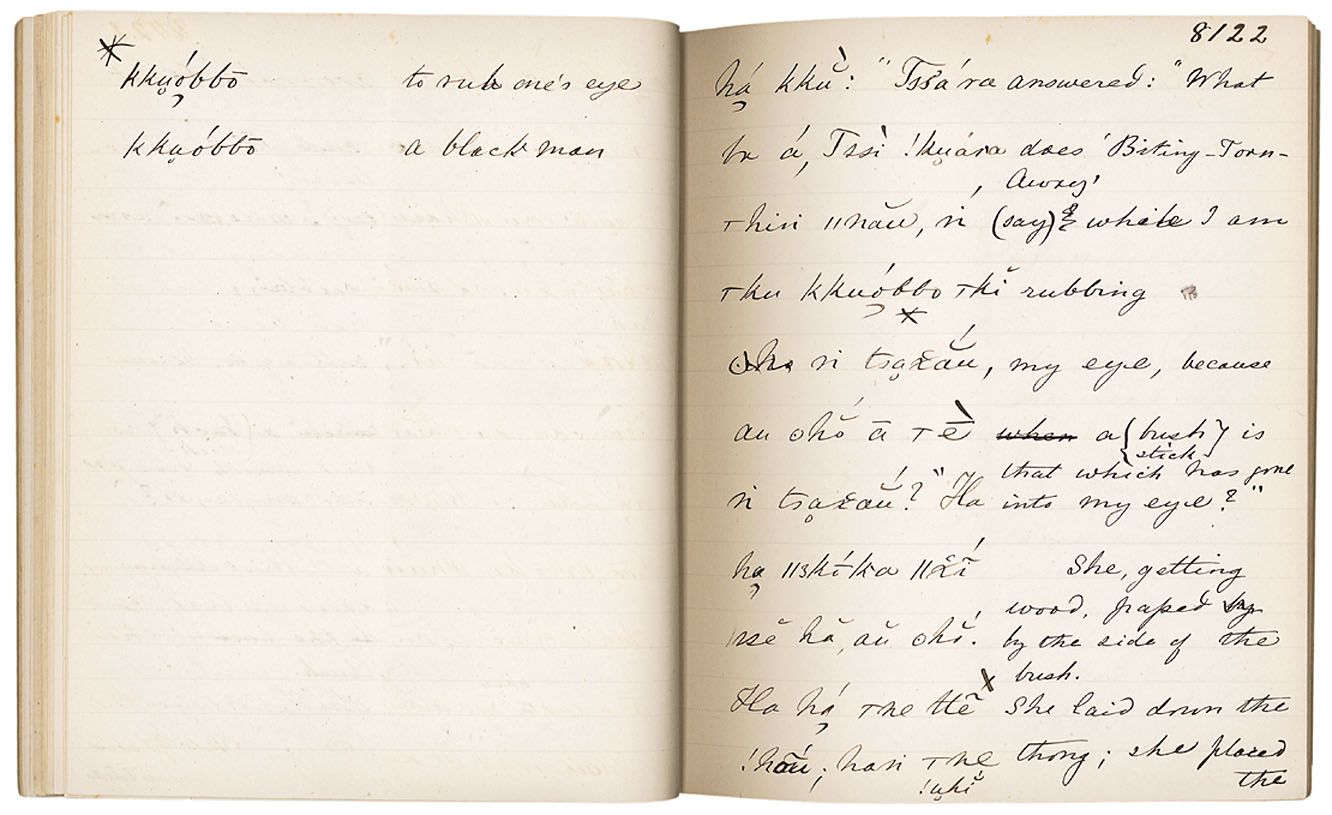 kkụóbbŏ to rub one's eye
kkụóbbŏ a black man
8122
hạ́ kkŭ: "Tssá́ra answered: "What
tạ á, Tssì !kụára does 'Biting-Torn-
Away,'
Thiri ǁnău, ń (say)? while I am
Tku kkụóbbo Tkĭ rubbing
ń tsạxău, my eye, because
au ohŏ ā Tḕ when a {bush} is
{stick}
that which has gone
ń tsạxáu? "Ha into my eye?"
hạ ǁkíka ǁxí She, getting
wood, passed by
ssĕ hă, aŭ ohŏ. by the side of the
bush.
Ha hạ́ The ttē̆ She laid down the
!hãú; han The thong; she placed
!ụhĭ the